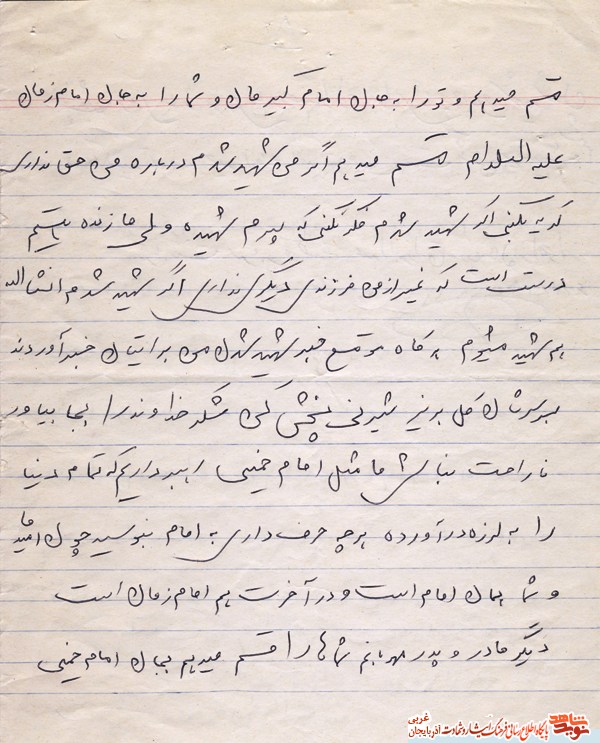 قسم میدهم و تو را به جان امام کبیرمان و شما را به جان امام زمان
علیه السلام قسم میدهم اگر من شهید شدم درباره من حق نداری
گریه بکنی اگر شهید شدم فکر نکنی که پسرم شهیده ولی ما زنده هستیم
درست است که غیر از من فرزندی دیگری نداری اگر شهید شدم انشااله
هم شهید میشوم هرگاه موقع خبر شهید شدن من برایتان خبر آوردند
برسرتان گل بریز شیرنی پخش کن شکر خداوند را بجا بیاور
ناراحت نباش ما مثل امام خمینی رهبر داریم که تمام دنیا
را به لرزه درآورده هرچه حرف داری به امام بنویسید چون امید ما
و شما همان امام است و در آخرت هم امام زمان است
دیگر مادر و پدر مهربانم شماها را قسم میدهم بجان امام خمینی
نوید شاهد
پایگاه اطلاع رسانی فرهنگ ایثار و شهادت آذربایجان غربی